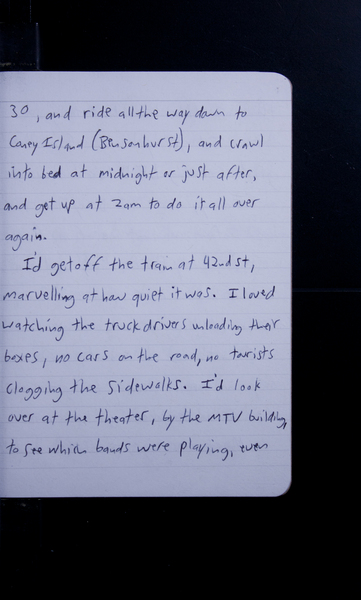 30, and ride all the way down to
Coney Island (Bensonhurst), and crawl
into bed at midnight or just after,
and get up at 2am to do it all over
again.
I'd get off the train at 42nd st,
marvelling at how quiet it was. I loved
watching the truck drivers unloading their
boxes, no cars on the road, no tourists
clogging the sidewalks. I'd look
over at the theater, by the MTV building,
to see which bands were playing, even